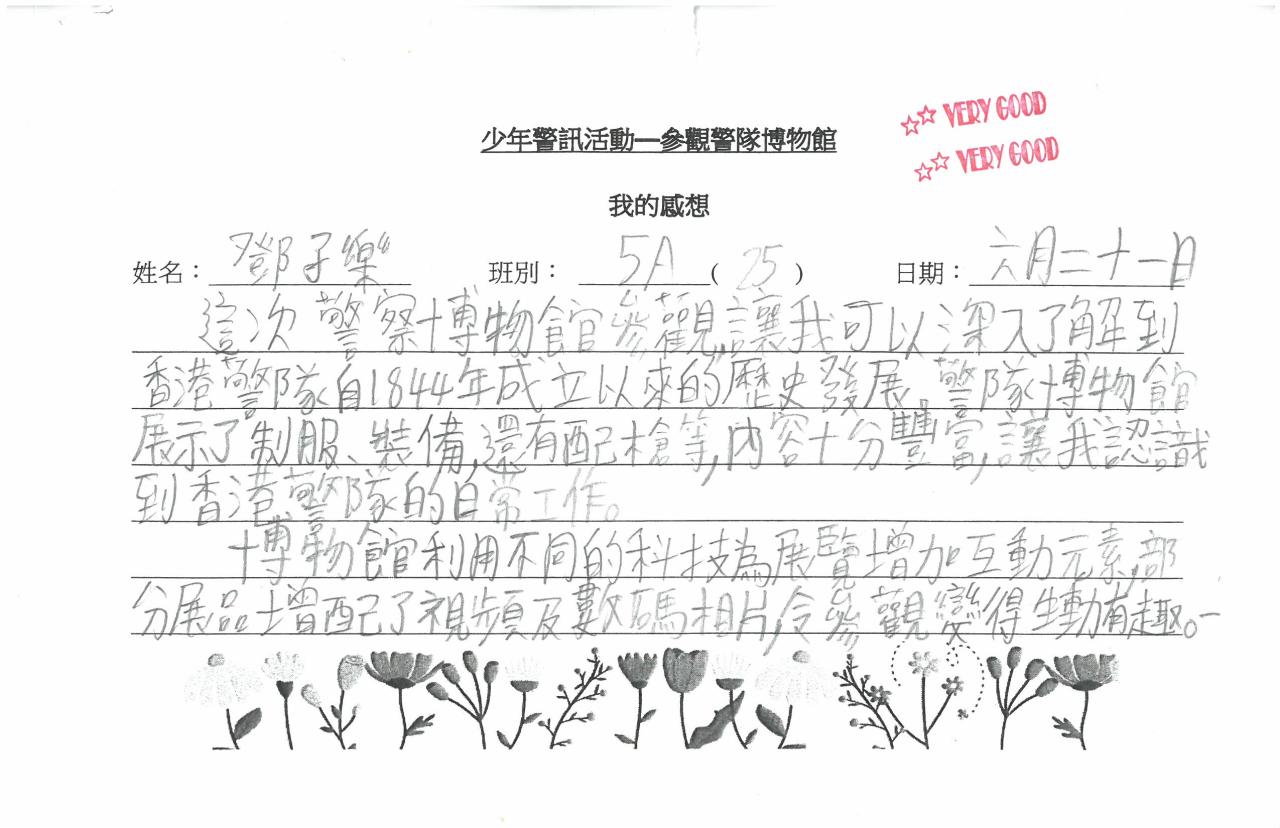 少年警訊活動—參觀警隊博物館
☆☆ VERY GOOD
☆☆ VERY GOOD
我的感想
姓名：鄧子樂 班別：5A (25) 日期：六月二十一日
這次警察博物館參觀,讓我可以深入了解到
香港警隊自1844年成立以來的歷史發展。警隊博物館
展示了制服、裝備,還有配槍等,內容十分豐富,讓我認識
到香港警隊的日常工作。
博物館利用不同的科技為展覽增加互動元素,部
分展品增配了視頻及數碼相片,令參觀變得生動有趣。